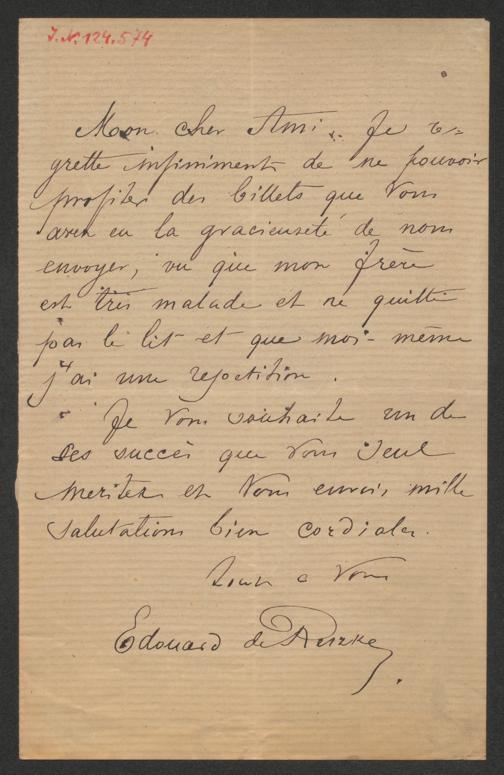 J.N. 124.574
Mon cher Ami. Je re-
grette infiniment de ne pouvoir
profiter des billets que Vous
avez eu la gracieuseté de nous
envoyer, vu que mon frère
est très malade et ne quitte
pas le lit et que moi-même
j'ai une repetition.
Je Vous souhaite un de
ces succès que Vous seul
meritez et Vous envois mille
salutations bien cordiales.
Tout a Vous
Edouard de Reszke